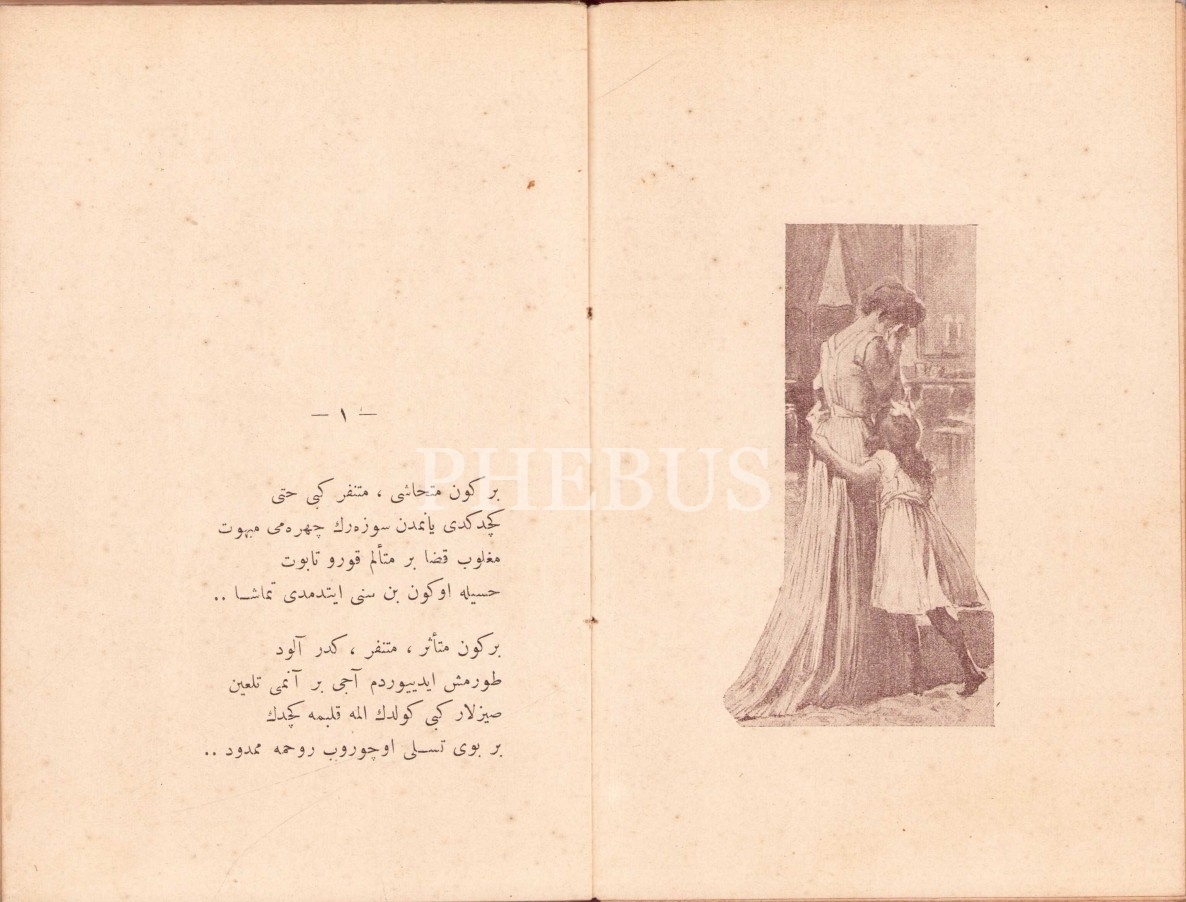 — ١ —
بر كون متحاشی ، متنفر كبی حتی
كچدكدی يانمدن سوزەرك چهرەمی مبهوت
مغلوب قضا بر متألم قورو تابوت
حسیله اوكون بن سنی ایتدمدی تماشا ..
بركون متأثر ، متنفر ، كدر آلود
طورمش ایدییوردم آجی بر آنمی تلعین
صیزلار كبی كولدك المه قلبمه كچدك
بر بوی تسلی اوچوروب روحمه ممدود ..
PHEBUS